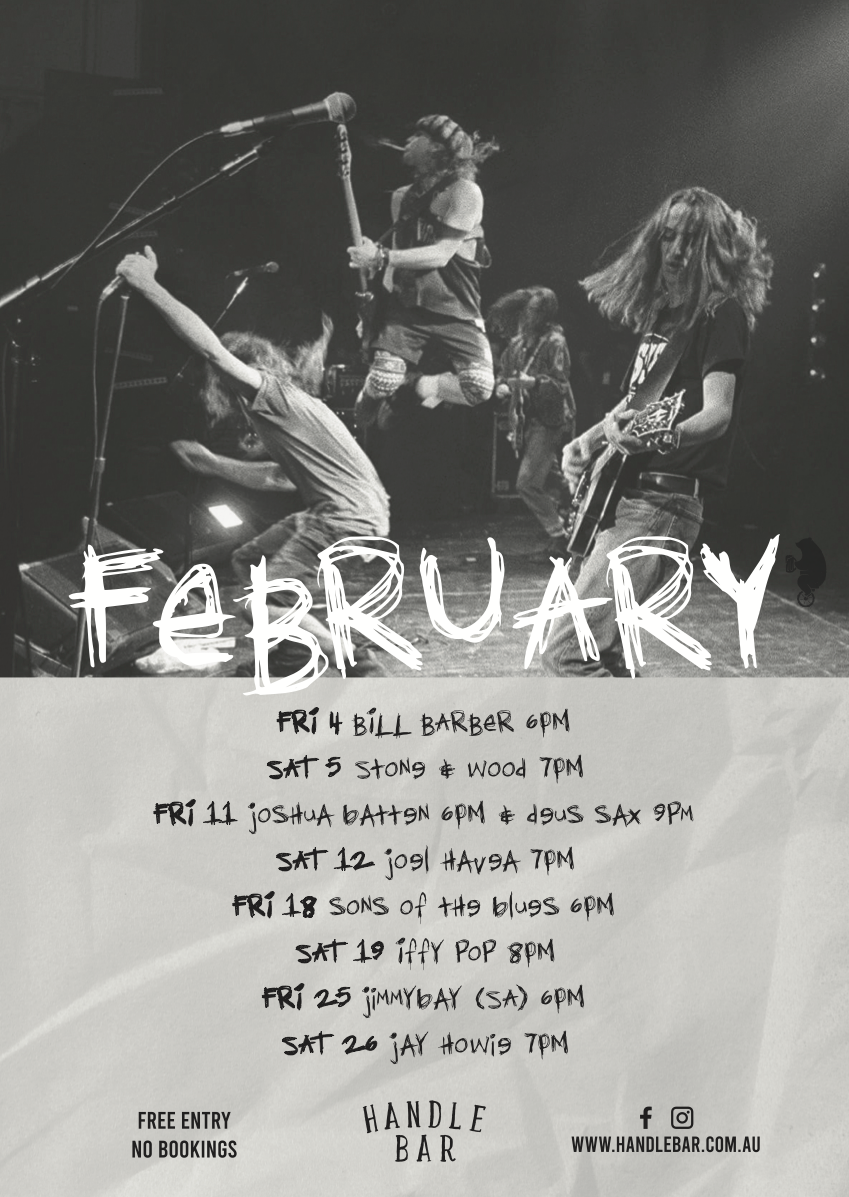 FeBRUARY
FRi 4 BiLL BARBeR 6PM
SAT 5 Stone & Wood 7PM
FRi 11 joSHuA bAtteN 6PM & deuS SAx 9PM
SAT 12 joel HAveA 7PM
FRi 18 SONS of tHe blueS 6PM
SAT 19 iffY PoP 8PM
FRi 25 jiMMYbAY (SA) 6PM
SAT 26 jAY Howie 7PM
FREE ENTRY
NO BOOKINGS
HANDLE
BAR
WWW.HANDLEBAR.COM.AU